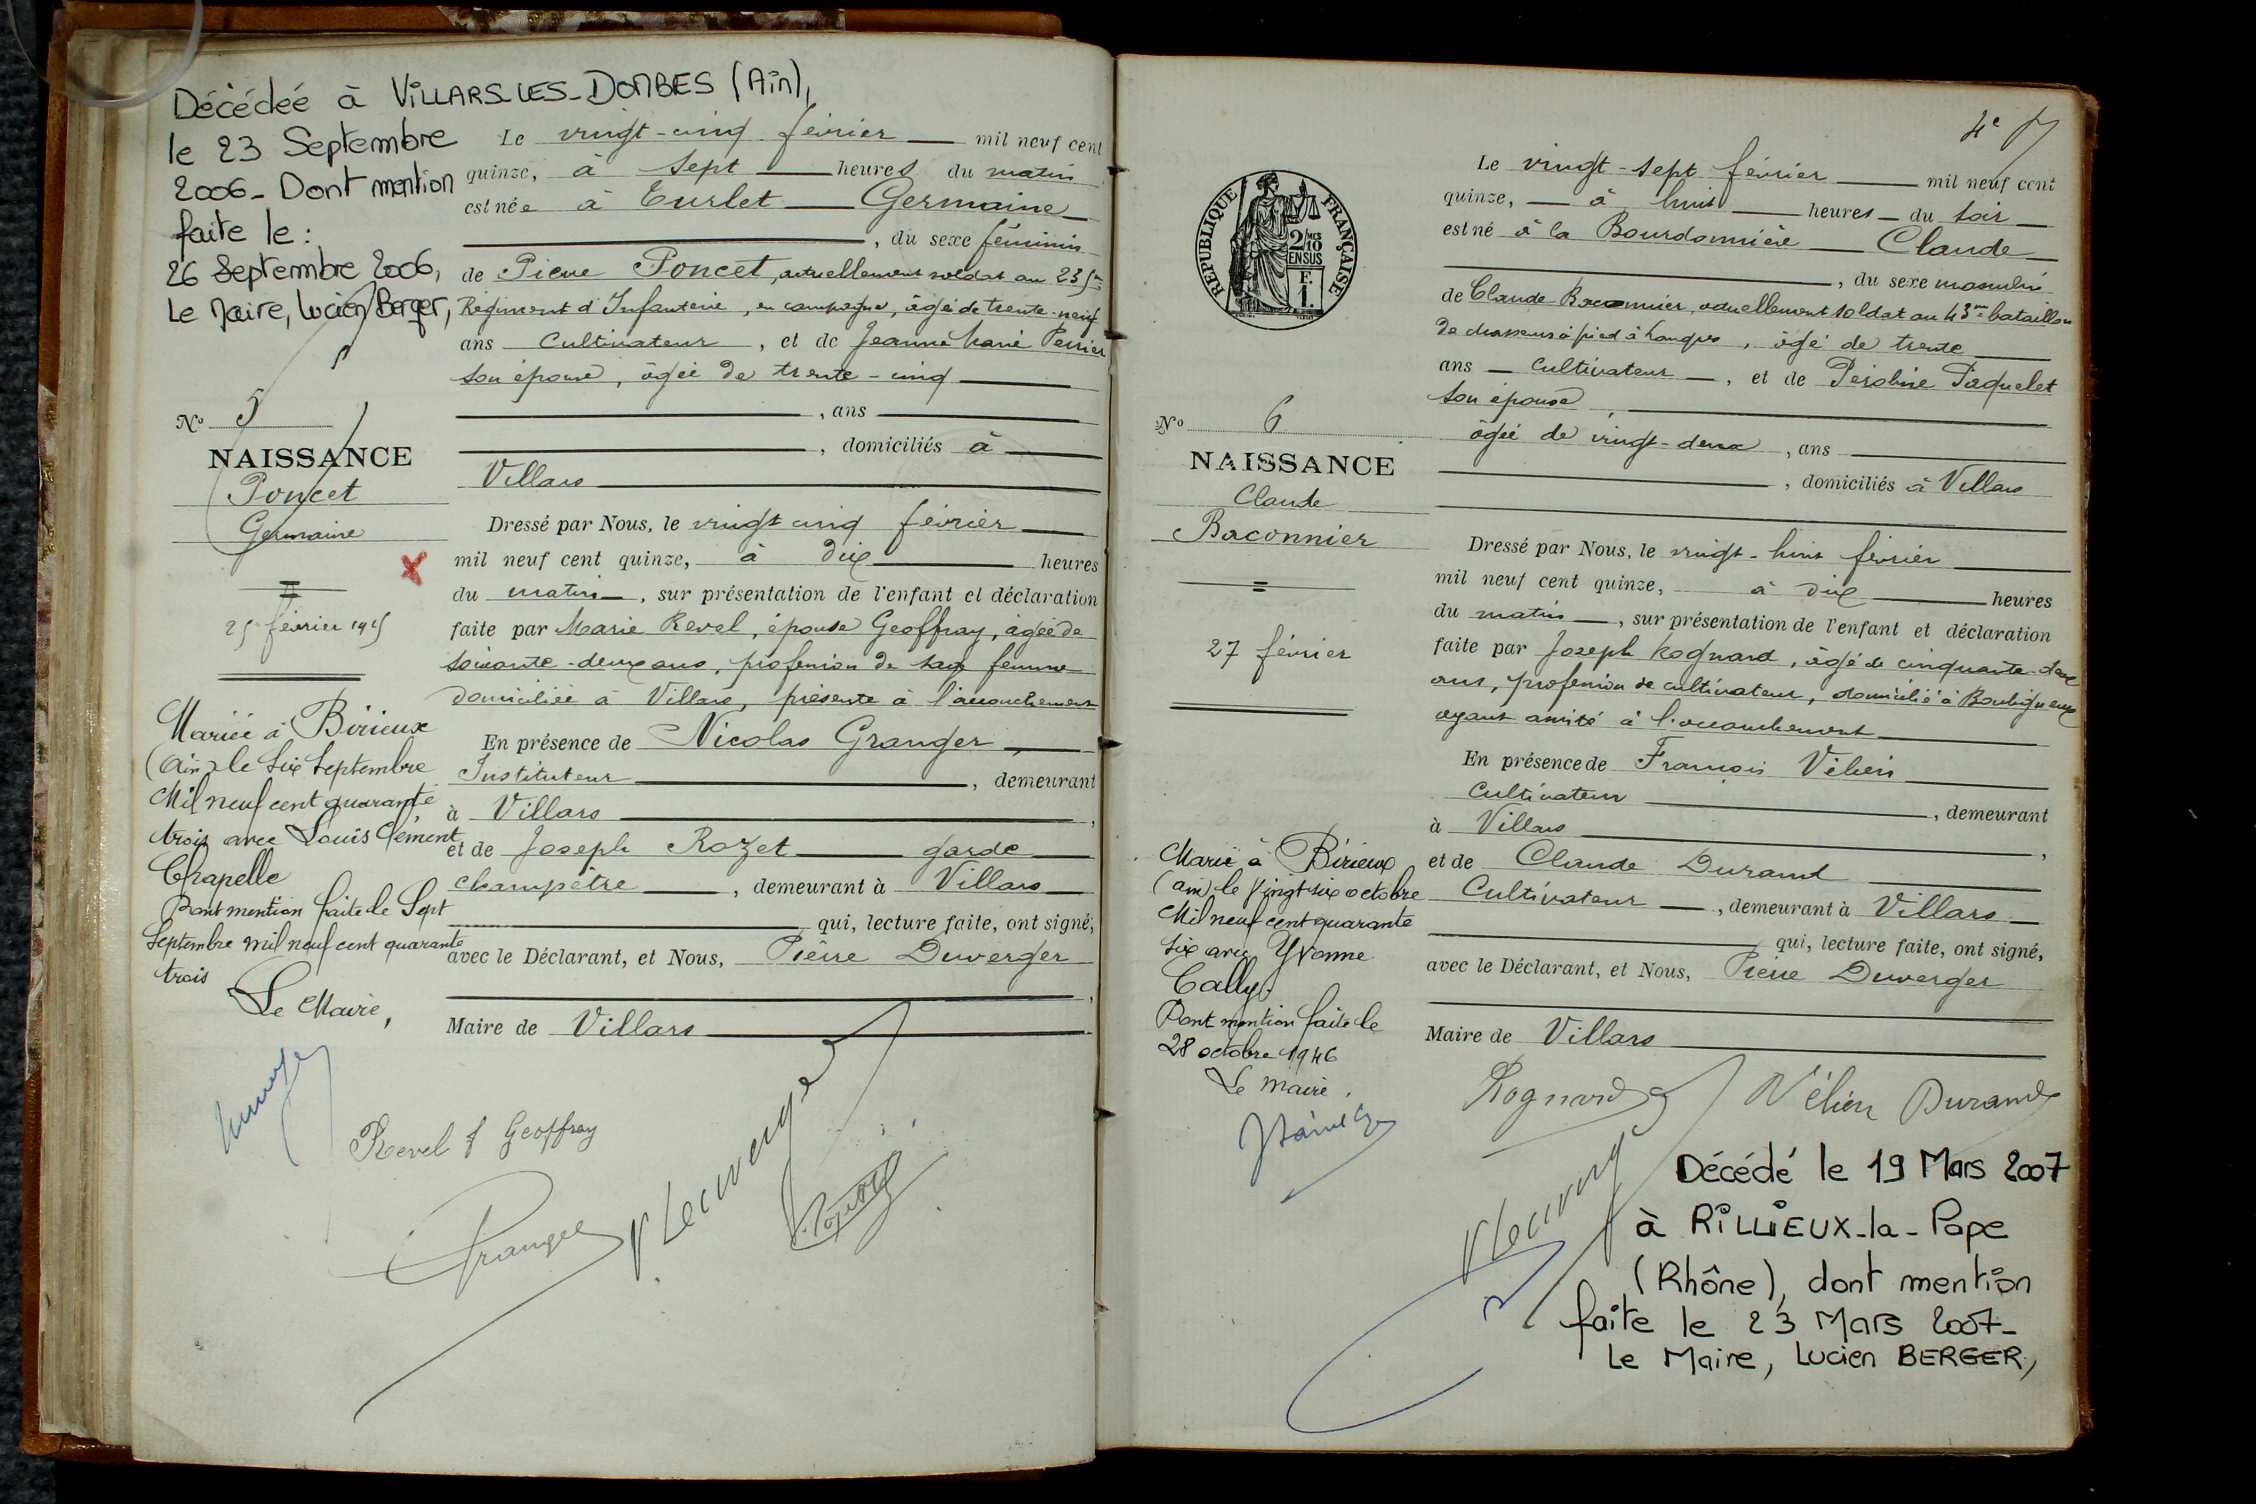 Décédée à VILLARS-LES-DOMBES (Ain),
le 23 Septembre
2006_ Dont mention
faite le :
26 Septembre 2006,
Le Maire, Lucien Berger,
No 5
NAISSANCE
Poncet
Germaine
25 février 1915
Mariée à Birieux
(Ain) le six Septembre
Mil neuf cent quarante
trois avec Louis Clément
Chapelle
Dont mention faite le Sept
Septembre mil neuf cent quarante
trois
Le Maire,
Le vingt-cinq février mil neuf cent
quinze, à sept heures du matin
est née à Turlet Germaine
, du sexe féminin
de Pierre Poncet, actuellement soldat au 235me
Régiment d'Infanterie, en campagne, âgé de trente-neuf
ans Cultivateur, et de Jeanne Marie Perrier
son épouse, âgée de trente-cinq
, ans
, domiciliés à
Villars
Dressé par Nous, le vingt cinq février
mil neuf cent quinze, à dix heures
du matin, sur présentation de l'enfant et déclaration
faite par Marie Revel, épouse Geoffray, âgée de
soixante-deux ans, profession de sage femme
domiciliée à Villars, présente à l'accouchement
En présence de Nicolas Granger,
Instituteur, demeurant
à Villars,
et de Joseph Rozet garde
champêtre, demeurant à Villars
qui, lecture faite, ont signé,
avec le Déclarant, et Nous, Pierre Duverger
,
Maire de Villars
Revel f Geoffray
Granger
4e
REPUBLIQUE FRANÇAISE
2/10 MES
EN SUS
F.
1.
No 6
NAISSANCE
Claude
Baconnier
27 février
Marié à Birieux
(ain) le vingt six octobre
Mil neuf cent quarante
six avec Yvonne
Cally.
Dont mention faite le
28 octobre 1946
Le maire.
Le vingt-sept février mil neuf cent
quinze, à huit heures du soir
est né à la Bourdonnière Claude
, du sexe masculin
de Claude Baconnier, actuellement soldat au 43me bataillon
de chasseurs à pied à Langres, âgé de trente
ans cultivateur, et de Péroline Paquelet
son épouse,
âgée de vingt-deux, ans
, domiciliés à Villars
Dressé par Nous, le vingt-huit février
mil neuf cent quinze, à dix heures
du matin, sur présentation de l'enfant et déclaration
faite par Joseph Rognard, âgé de cinquante-deux
ans, profession de cultivateur, domicilié à Bouligneux
ayant assisté à l'accouchement
En présence de François Vélien
Cultivateur, demeurant
à Villars,
et de Claude Durand
Cultivateur, demeurant à Villars
qui, lecture faite, ont signé,
avec le Déclarant, et Nous, Pierre Duverger
Maire de Villars
Rognard Vélien Durand
Décédé le 19 Mars 2007
à RILLIEUX-la-Pape
(Rhône), dont mention
faite le 23 Mars 2007_
Le Maire, Lucien BERGER,